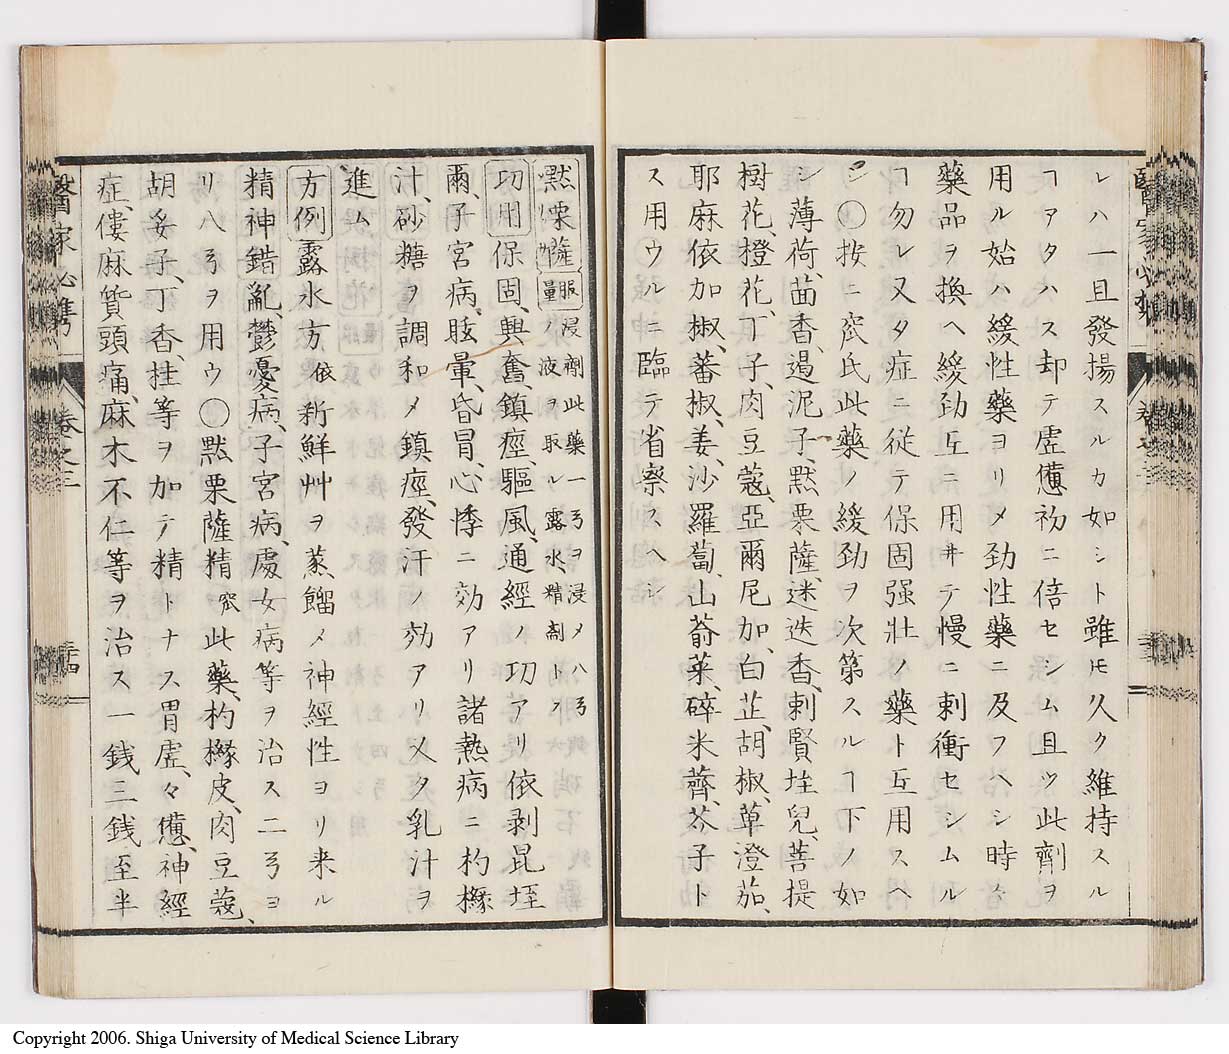 レハ一旦發揚スルカ如シト雖モ久ク維持スル
ヿアタハス却テ虚憊初ニ倍セシム且ツ此劑ヲ
用ル始ハ緩性藥ヨリメ劲性藥ニ及フヘシ時々
藥品ヲ換ヘ緩劲互ニ用井テ慢ニ刺衝セシムル
ヿ勿レ又タ症ニ従テ保固强壮ノ藥ト互用スヘ
シ〇按ニ窊氏此藥ノ緩劲ヲ次第スルヿ下ノ如
シ薄荷、茴香、遏泥子、黙栗薩、迷迭香、刺賢埵兒、菩提
樹花、橙花、丁子、肉豆蔻、亞爾尼加、白芷、胡椒、蓽澄茄、
耶麻依加椒、蕃椒、姜、沙羅蔔、山萮菜、碎米薺、芥子ト
ス用ウルニ臨テ省察スヘシ
黙栗薩 服量 浸劑此藥一弓ヲ浸メ八弓
ノ液ヲ取ル露水精劑トス
功用 保固、興奮、鎮痙、驅風、通經ノ功アリ依剥昆垤
爾、子宮病、眩暈、昏冒、心悸ニ効アリ諸熱病ニ杓櫞
汁、砂糖ヲ調和メ鎮痙、發汗ノ効アリメタ乳汁ヲ
進ム
方例 露水方 依 新鮮艸ヲ蒸餾メ神經性ヨリ来ル
精神錯亂、鬱憂病、子宮病、處女病等ヲ治ス二弓ヨ
リ八弓ヲ用ウ〇黙栗薩精 窊 此藥、杓櫞皮、肉豆蔻、
胡妥子、丁香、桂等ヲ加テ精トナス胃虚々憊、神經
症、僂麻質頭痛、麻木不仁等ヲ治ス一銭三銭至半
醫家必携
卷之三
Copyright 2006. Shiga University of Medical Science Library